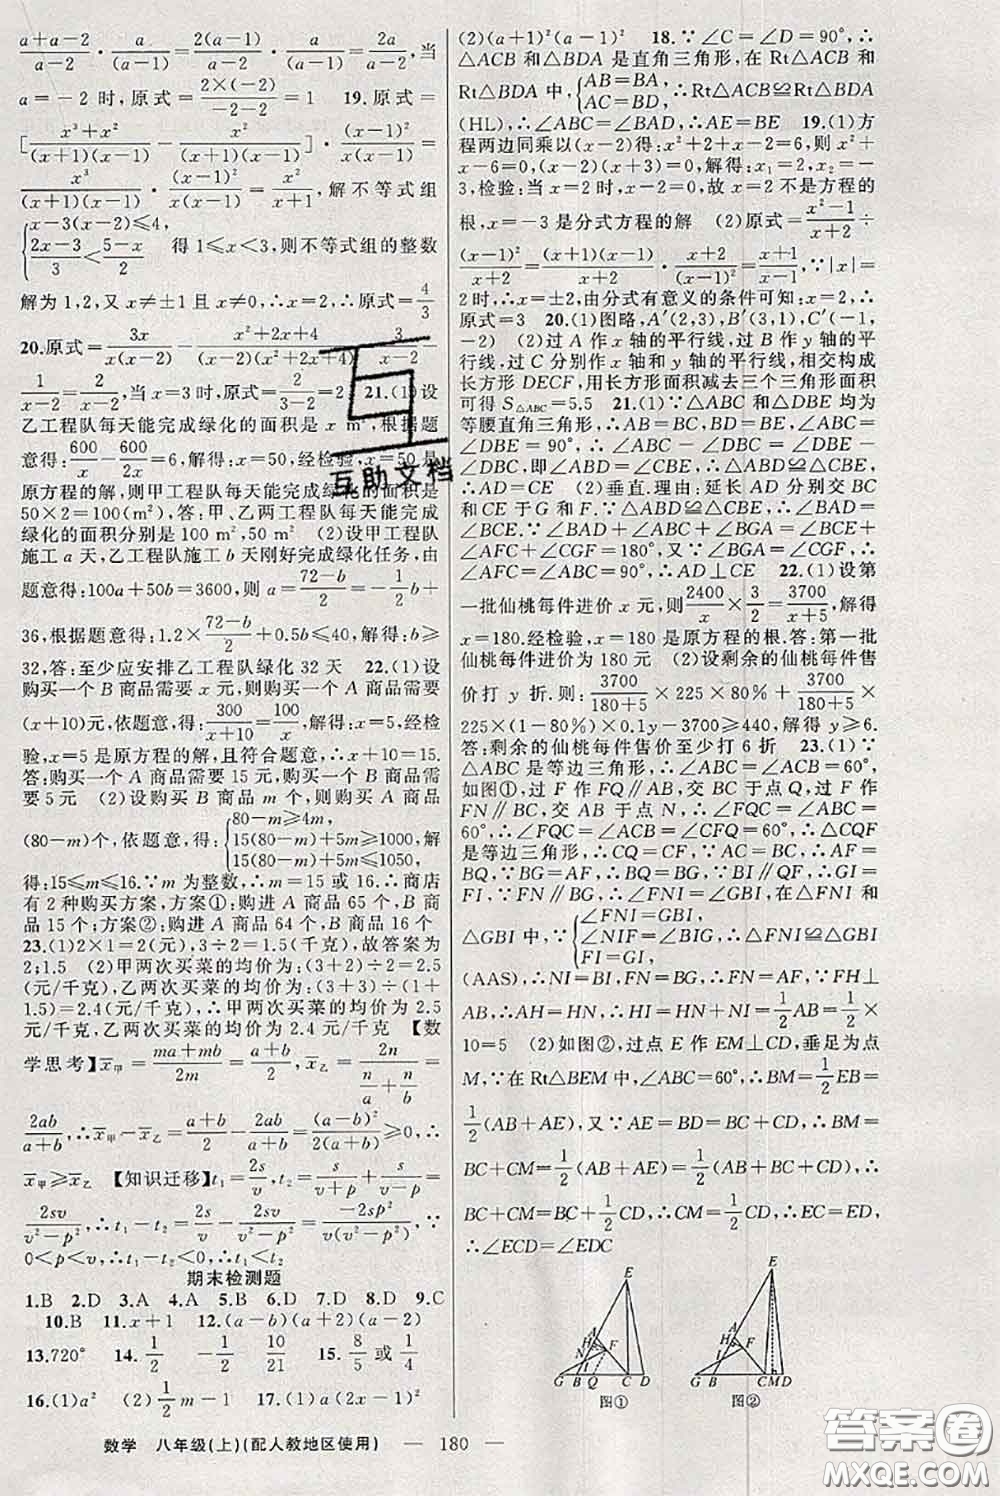 $\frac{a+a-2}{a-2}\cdot\frac{a}{(a-1)}=\frac{2(a-1)}{a-2}\cdot\frac{a}{(a-1)}=\frac{2a}{a-2}$,当
a=-2时,原式=$\frac{2×(-2)}{-2-2}$=1 19.原式=
$[\frac{x^3+x^2}{(x+1)(x-1)}-\frac{x^2}{(x+1)(x-1)}]\cdot\frac{(x-1)^2}{x(x-1)}=$
$\frac{x^3}{(x+1)(x-1)}\cdot\frac{(x-1)^2}{x(x-1)}=\frac{x^2}{x+1}$,解不等式组
$\begin{cases}x-3(x-2)≤4,\\\frac{2x-3}{3}<\frac{5-x}{2}\end{cases}$ 得1≤x<3,则不等式组的整数
解为1,2,又x≠±1且x≠0,∴x=2,∴原式=$\frac{4}{3}$
20.原式=$\frac{3x}{x(x-2)}-\frac{x^2+2x+4}{(x-2)(x^2+2x+4)}=\frac{3}{x-2}-$
$\frac{1}{x-2}=\frac{2}{x-2}$,当x=3时,原式=$\frac{2}{3-2}$=2 21.(1)设
乙工程队每天能完成绿化的面积是x m²,根据题
意得:$\frac{600}{x}-\frac{600}{2x}$=6,解得:x=50,经检验,x=50是
原方程的解,则甲工程队每天能完成绿化的面积是
50×2=100(m²),答:甲、乙两工程队每天能完成
绿化的面积分别是100 m²,50 m² (2)设甲工程队
施工a天,乙工程队施工b天刚好完成绿化任务,由
题意得:100a+50b=3600,则a=$\frac{72-b}{2}=-\frac{1}{2}b+$
36,根据题意得:1.2×$\frac{72-b}{2}$+0.5b≤40,解得:b≥
32,答:至少应安排乙工程队绿化32天 22.(1)设
购买一个B商品需要x元,则购买一个A商品需要
(x+10)元,依题意,得:$\frac{300}{x+10}=\frac{100}{x}$,解得:x=5,经检
验,x=5是原方程的解,且符合题意,∴x+10=15.
答:购买一个A商品需要15元,购买一个B商品需
要5元 (2)设购买B商品m个,则购买A商品
(80-m)个,依题意,得:$\begin{cases}80-m≥4m,\\15(80-m)+5m≥1000,\\15(80-m)+5m≤1050,\end{cases}$解
得:15≤m≤16.∵m为整数,∴m=15或16.∴商店
有2种购买方案,方案①:购进A商品65个,B商
品15个;方案②:购进A商品64个,B商品16个
23.(1)2×1=2(元),3÷2=1.5(千克),故答案为
2;1.5 (2)甲两次买菜的均价为:(3+2)÷2=2.5
(元/千克),乙两次买菜的均价为:(3+3)÷(1+
1.5)=2.4(元/千克),∴甲两次买菜的均价为2.5
元/千克,乙两次买菜的均价为2.4元/千克 【数
学思考】$\overline{x}_甲=\frac{ma+mb}{2m}=\frac{a+b}{2}$,$\overline{x}_乙=\frac{2n}{\frac{n}{a}+\frac{n}{b}}=$
$\frac{2ab}{a+b}$,∴$\overline{x}_甲-\overline{x}_乙=\frac{a+b}{2}-\frac{2ab}{a+b}=\frac{(a-b)^2}{2(a+b)}$≥0,∴
$\overline{x}_甲≥\overline{x}_乙$ 【知识迁移】$t_1=\frac{2s}{v}$,$t_2=\frac{s}{v+p}+\frac{s}{v-p}=$
$\frac{2sv}{v^2-p^2}$,∴$t_1-t_2=\frac{2s}{v}-\frac{2sv}{v^2-p^2}=\frac{-2sp^2}{v(v^2-p^2)}$,∵
0<p<v,∴$t_1-t_2$<0,∴$t_1<t_2$
期末检测题
1.B 2.D 3.A 4.A 5.B 6.D 7.D 8.D 9.C
10.B 11.x+1 12.(a-b)(a+2)(a-2)
13.720° 14.$\frac{1}{2}$ $-\frac{1}{2}$ $\frac{10}{21}$ 15.$\frac{8}{5}$或$\frac{1}{4}$
16.(1)a² (2)$\frac{1}{2}$m-1 17.(1)a(2x-1)²
(2)(a+1)²(a-1)² 18.∵∠C=∠D=90°,∴
△ACB和△BDA是直角三角形,在Rt△ACB和
Rt△BDA中,$\begin{cases}AB=BA,\\AC=BD,\end{cases}$∴Rt△ACB≌Rt△BDA
(HL),∴∠ABC=∠BAD,∴AE=BE 19.(1)方
程两边同乘以(x-2)得:x²+2+x-2=6,则x²+
x-6=0,(x-2)(x+3)=0,解得:x₁=2,x₂=-
3,检验:当x=2时,x-2=0,故x=2不是方程的
根,x=-3是分式方程的解 (2)原式=$\frac{x^2-1}{x+2}$÷
$\frac{(x-1)^2}{x+2}=\frac{(x+1)(x-1)}{x+2}\cdot\frac{x+2}{(x-1)^2}=\frac{x+1}{x-1}$,∵|x|=
2时,∴x=±2,由分式有意义的条件可知:x=2,∴
原式=3 20.(1)图略,A′(2,3),B′(3,1),C′(-1,
-2) (2)过A作x轴的平行线,过B作y轴的平
行线,过C分别作x轴和y轴的平行线,相交构成
长方形DECF,用长方形面积减去三个三角形面积
可得$S_{△ABC}$=5.5 21.(1)∵△ABC和△DBE均为
等腰直角三角形,∴AB=BC,BD=BE,∠ABC=
∠DBE=90°,∴∠ABC-∠DBC=∠DBE-
∠DBC,即∠ABD=∠CBE,∴△ABD≌△CBE,
∴AD=CE (2)垂直.理由:延长AD分别交BC
和CE于G和F.∵△ABD≌△CBE,∴∠BAD=
∠BCE.∵∠BAD+∠ABC+∠BGA=∠BCE+
∠AFC+∠CGF=180°,又∵∠BGA=∠CGF,
∴∠AFC=∠ABC=90°,∴AD⊥CE 22.(1)设第
一批仙桃每件进价x元,则$\frac{2400}{x}×\frac{3}{2}=\frac{3700}{x+5}$,解得
x=180.经检验,x=180是原方程的根.答:第一批
仙桃每件进价为180元 (2)设剩余的仙桃每件售
价打y折.则:$\frac{3700}{180+5}$×225×80%+$\frac{3700}{180+5}$×
225×(1-80%)×0.1y-3700≥440,解得y≥6.
答:剩余的仙桃每件售价至少打6折 23.(1)∵
△ABC是等边三角形,∴∠ABC=∠ACB=60°,
如图①,过F作FQ∥AB,交BC于点Q,过F作
FN∥BC,交AB于点N,∴∠FQC=∠ABC=
60°,∴∠FQC=∠ACB=∠CFQ=60°,∴△CQF
是等边三角形,∴CQ=CF,∵AC=BC,∴AF=
BQ,∵BG=AF,∴BQ=BG,∵BI∥FQ,∴GI=
FI,∵FN∥BG,∴∠FNI=∠GBI,在△FNI和
△GBI中,∵$\begin{cases}∠FNI=GBI,\\∠NIF=∠BIG,\\FI=GI,\end{cases}$∴△FNI≌△GBI
(AAS),∴NI=BI,FN=BG,∴FN=AF,∵FH⊥
AB,∴AH=HN,∴HI=HN+NI=$\frac{1}{2}$AB=$\frac{1}{2}$×
10=5 (2)如图②,过点E作EM⊥CD,垂足为点
M,∵在Rt△BEM中,∠ABC=60°,∴BM=$\frac{1}{2}$EB=
$\frac{1}{2}$(AB+AE),又∵AE=BD=BC+CD,∴BM=
BC+CM=$\frac{1}{2}$(AB+AE)=$\frac{1}{2}$(AB+BC+CD)=
BC+CM=BC+$\frac{1}{2}$CD,∴CM=$\frac{1}{2}$CD,∴EC=ED,
∴∠ECD=∠EDC
E
A
H
N
F
I
G B Q C D
图①
E
A
H
F
I
G B C M D
图②
互助文档
数学 八年级(上)(配人教地区使用) — 180 —
答案圈
MXQE.COM